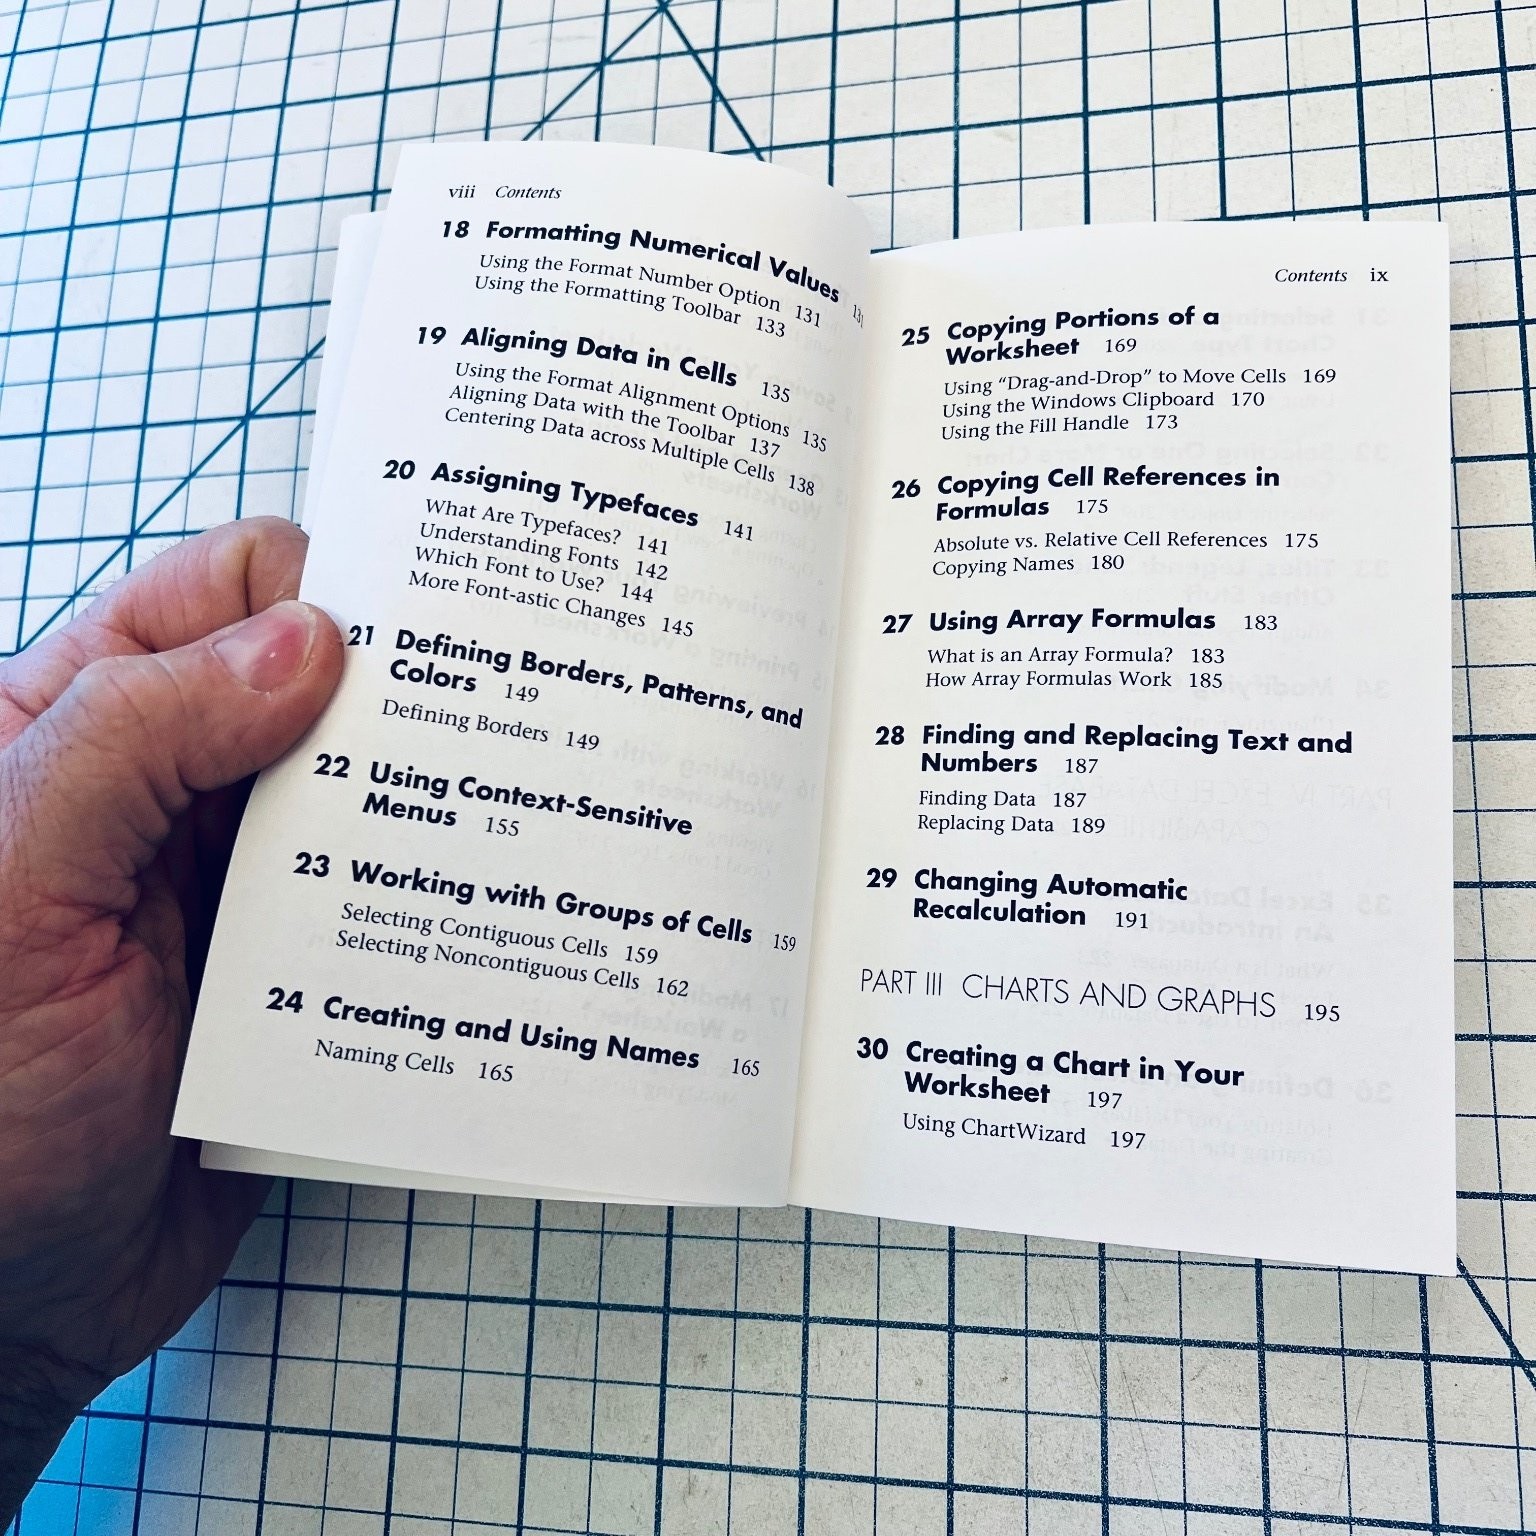 viii Contents
18 Formatting Numerical Values 131
Using the Format Number Option 131
Using the Formatting Toolbar 133
19 Aligning Data in Cells 135
Using the Format Alignment Options 135
Aligning Data with the Toolbar 137
Centering Data across Multiple Cells 138
20 Assigning Typefaces 141
What Are Typefaces? 141
Understanding Fonts 142
Which Font to Use? 144
More Font-astic Changes 145
21 Defining Borders, Patterns, and
Colors 149
Defining Borders 149
22 Using Context-Sensitive
Menus 155
23 Working with Groups of Cells 159
Selecting Contiguous Cells 159
Selecting Noncontiguous Cells 162
24 Creating and Using Names 165
Naming Cells 165
Contents ix
25 Copying Portions of a
Worksheet 169
Using “Drag-and-Drop” to Move Cells 169
Using the Windows Clipboard 170
Using the Fill Handle 173
26 Copying Cell References in
Formulas 175
Absolute vs. Relative Cell References 175
Copying Names 180
27 Using Array Formulas 183
What is an Array Formula? 183
How Array Formulas Work 185
28 Finding and Replacing Text and
Numbers 187
Finding Data 187
Replacing Data 189
29 Changing Automatic
Recalculation 191
PART III CHARTS AND GRAPHS 195
30 Creating a Chart in Your
Worksheet 197
Using ChartWizard 197